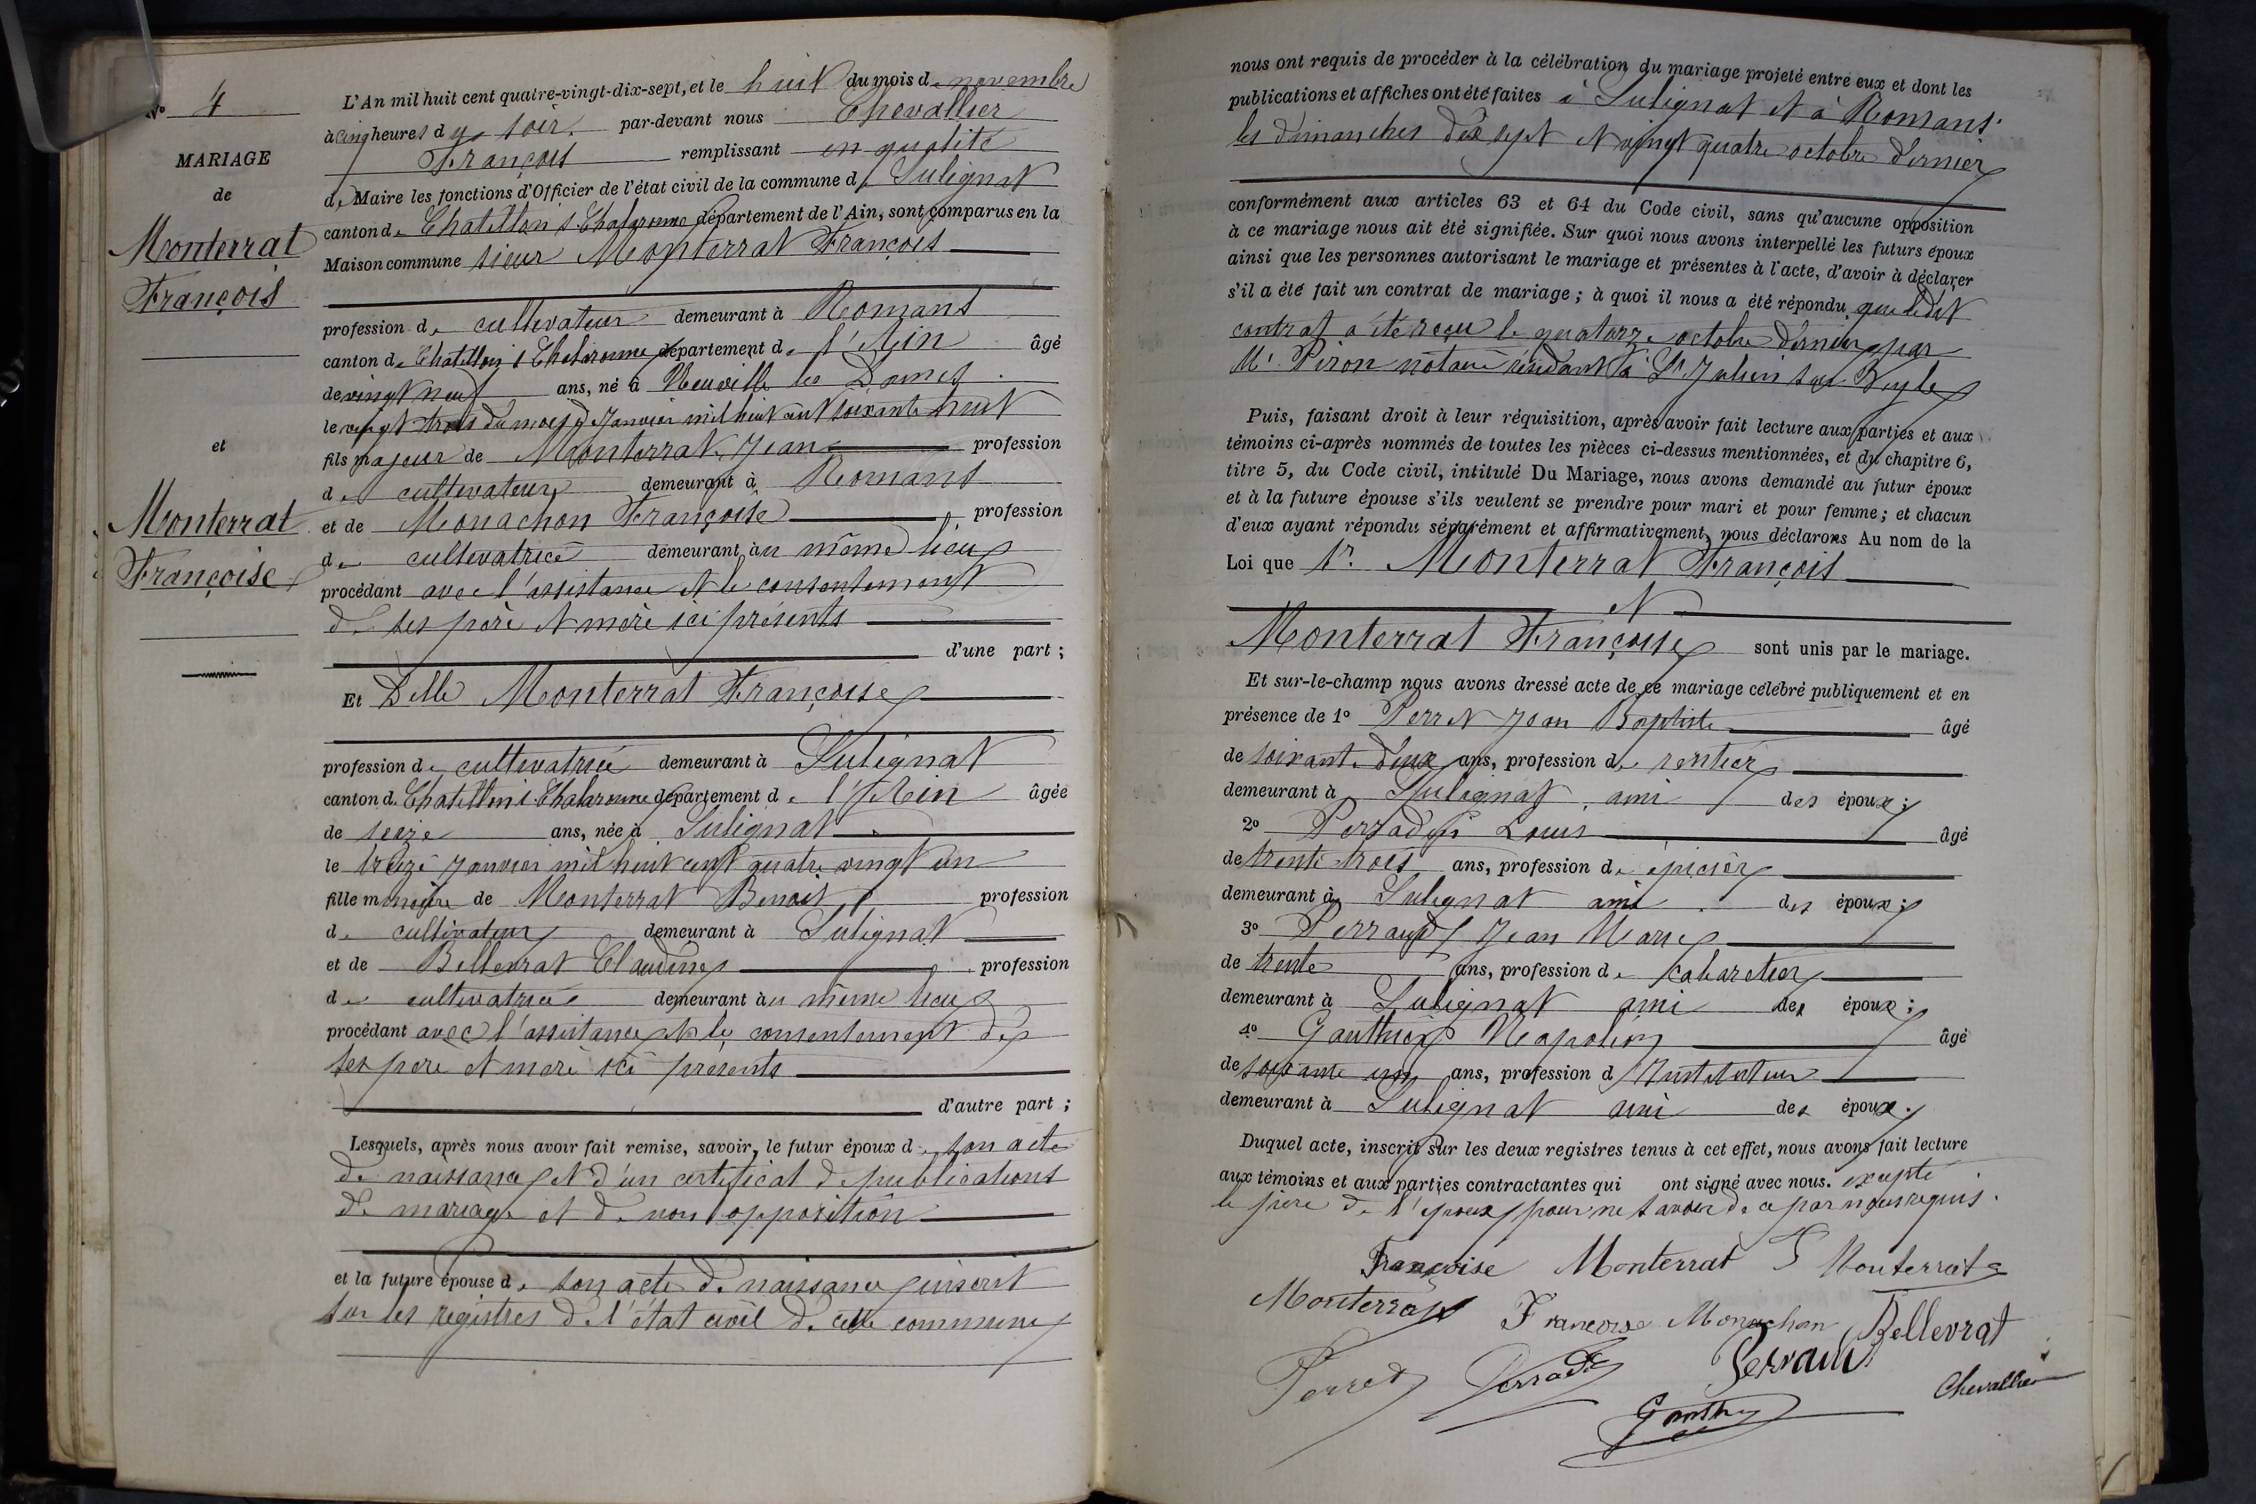 No 4
MARIAGE
de
Monterrat
François
et
Monterrat
Françoise
L'An mil huit cent quatre-vingt-dix-sept, et le huit du mois de novembre
à cinq heures du soir. par-devant nous Chevallier
François remplissant en qualité
de Maire les fonctions d'Officier de l'état civil de la commune de Sulignat
canton de Chatillon s Chalaronne département de l'Ain, sont comparus en la
Maison commune sieur Monterrat François
profession de cultivateur demeurant à Romans
canton de Chatillon s Chalaronne département de l'Ain âgé
de vingt neuf ans, né à Neuville les Dames
le vingt trois du mois de Janvier mil huit cent soixante huit
fils majeur de Monterrat Jean profession
de cultivateur demeurant à Romans
et de Monachon Françoise profession
de cultivatrice demeurant au même lieu
procédant avec l'assistance et le consentement
de ses père et mère ici présents
d'une part ;
Et Delle Monterrat Françoise
profession de cultivatrice demeurant à Sulignat
canton de Chatillon s Chalaronne département de l'Ain âgée
de seize ans, née à Sulignat
le treize janvier mil huit cent quatre vingt un
fille mineure de Monterrat Benoit profession
de cultivateur demeurant à Sulignat
et de Bellevrat Claudine profession
de cultivatrice demeurant au même lieu
procédant avec l'assistance et le consentement de
ses père et mère ici présents
d'autre part ;
Lesquels, après nous avoir fait remise, savoir, le futur époux de son acte
de naissance et d'un certificat de publications
de mariage et de non opposition
et la future épouse de son acte de naissance inscrit
sur les registres de l'état civil de cette commune
nous ont requis de procéder à la célébration du mariage projeté entre eux et dont les
publications et affiches ont été faites à Sulignat et à Romans
les dimanches dix sept et vingt quatre octobre dernier
conformément aux articles 63 et 64 du Code civil, sans qu'aucune opposition
à ce mariage nous ait été signifiée. Sur quoi nous avons interpellé les futurs époux
ainsi que les personnes autorisant le mariage et présentes à l'acte, d'avoir à déclarer
s'il a été fait un contrat de mariage ; à quoi il nous a été répondu que ledit
contrat a été reçu le quatorze octobre dernier par
Me Piron notaire résidant à St Julien sur Veyle
Puis, faisant droit à leur réquisition, après avoir fait lecture aux parties et aux
témoins ci-après nommés de toutes les pièces ci-dessus mentionnées, et du chapitre 6,
titre 5, du Code civil, intitulé Du Mariage, nous avons demandé au futur époux
et à la future épouse s'ils veulent se prendre pour mari et pour femme ; et chacun
d'eux ayant répondu séparément et affirmativement, nous déclarons Au nom de la
Loi que Sr. Monterrat François
et
Monterrat Françoise sont unis par le mariage.
Et sur-le-champ nous avons dressé acte de ce mariage célébré publiquement et en
présence de 1o Perret Jean Baptiste âgé
de soixante deux ans, profession de rentier
demeurant à Sulignat ami des époux ;
2o Louis âgé
de trente trois ans, profession de épicier
demeurant à Sulignat ami des époux ;
3o Perraud Jean Marie
de trente ans, profession de cabaretier
demeurant à Sulignat ami des époux ;
4o Gauthier Napoléon âgé
de soixante un ans, profession d'Instituteur
demeurant à Sulignat ami des époux.
Duquel acte, inscrit sur les deux registres tenus à cet effet, nous avons fait lecture
aux témoins et aux parties contractantes qui ont signé avec nous. excepté
le père de l'époux pour ne savoir de ce par nous requis.
Françoise Monterrat F Monterrat
Monterrat Françoise Monachon Bellevrat
Perret Perraud
Chevallier